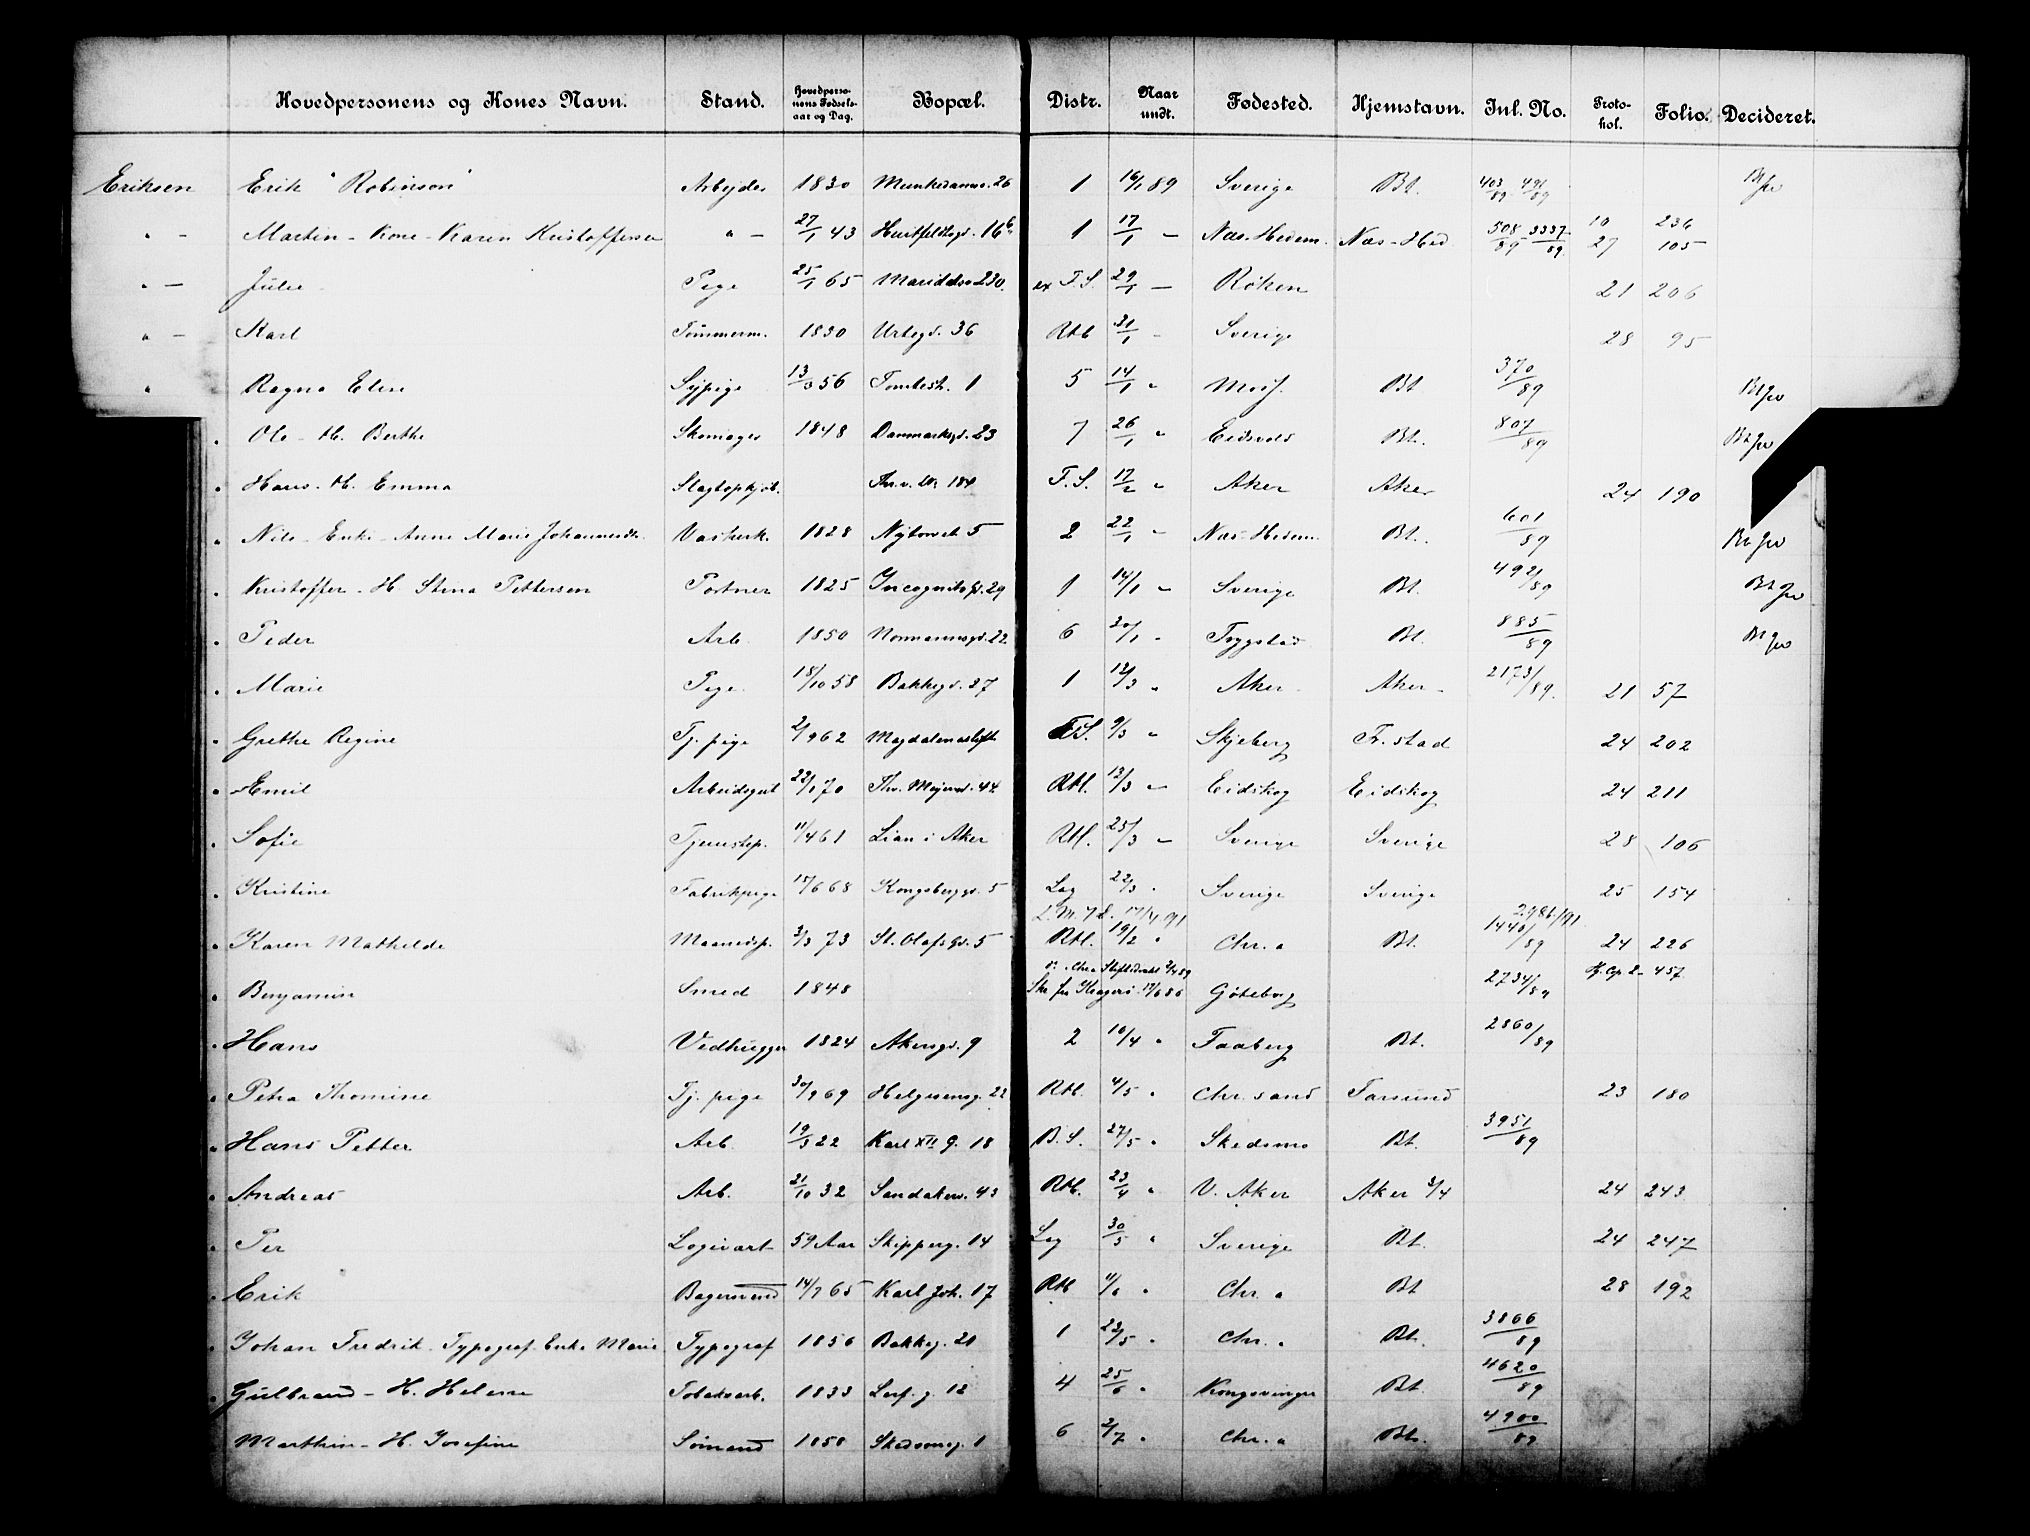 Hovedpersonens og Kones Navn. Stand. Hovedperso-nens Fødsels-aar og Dag. Bopæl. Distr. Naar undt. Fødested. Hjemstavn. Inl. No. Proto-kol. Folio. Decideret.
Eriksen Erik "Robinson" Arbejder 1830 Munkedamsv. 26 1 16/1 89 Sverige Bt. 403/89 491/89
" - Martin - Kone - Karen Kristoffersen " - 27/1 43 Huitfeldtsgd. 16b 1 17/1 - Næs-Hedem. Næs-Hed 508/89 3337/89 10 236 27 105
" - Julie Pige 25/1 65 Maridalsv 230 ex F.S. 29/1 - Røken 21 206
" - Karl Tømmerm. 1830 Urtegd. 36 Rtl 31/1 - Sverige 28 95
" Ragna Elise Sypige 13/3 56 Tomtest. 1 5 14/1 " Moss. Bt 370/89
" Ole - H. Berthe Skomager 1848 Danmarksgd. 23 7 26/1 " Eidsvold Bt. 807/89
" Hans - H. Emma Slagtopkjøb. 184 F.S. 17/2 " Aker Aker 24 190
" Nils - Enke - Anne Marie Johannesdtr. Vaskerk. 1828 Nytorvet 5 2 22/1 " Næs-Hedem. Bt. 601/89
" Kristoffer - H Stina Pettersen Portner 1825 Incognitogd. 29 1 14/1 " Sverige Bt. 492/89
" Peder Arb. 1850 Normannsgd. 22 6 20/1 " Trygstad Bt. 885/89
" Marie Pige 18/10 58 Bakkegd. 27 1 12/3 " Aker Aker 2173/89 21 57
" Grethe Regine Tj. pige 2/9 62 Magdalenastift F.S. 9/3 " Skjeberg Fr.stad 24 202
" Emil Arbeidsgut 22/1 70 Thv. Meyersgd. 44 Rtl. 13/3 " Eidskog Eidskog 24 211
" Sofie Tjenstep. 11/4 61 Lian i Aker Rtl. 25/3 " Sverige Sverige 28 106
" Kristine Fabrikpige 15/6 68 Kongsberggd. 5 Lag 22/3 " Sverige Sverige 25 154
17/4 91 2986/91
" Karen Mathilde Maanedsp. 3/3 73 St. Olafsgd. 5 Rtl. 19/2 " Chr.a Bt. 1440/89 24 226
Chr.a 2/4 89 457
" Benjamin Smed 1848 Skr. fra Kragerø 17/6 86 Gøteborg 2734/89
" Hans Vedhugger 1824 Akersgd. 9 2 10/4 " Faaberg Bt. 2860/89
" Petra Thomine Tj. pige 30/9 69 Helgesensg. 22 Rtl. 4/5 " Chr.sand Farsund 23 180
" Hans Petter Arb. 19/3 22 Karl XII g. 18 B.S. 27/5 " Skedsmo Bt. 3951/89
" Andreas Arb. 21/10 32 Sandakerv. 43 Rtl. 23/4 " V. Aker Aker 3/4 24 243
" Per Logivært 59 Aar Skipperg. 14 Lag 30/5 " Sverige Bt. 24 247
" Erik Bagersvend 14/7 65 Karl Joh. 17 Rtl 11/6 " Chr.a Bt 28 192
" Johan Fredrik - Typograf - Enke Marie Typograf 1856 Bakkeg. 21 1 23/5 " Chr.a Bt. 3866/89
" Gulbrand - H. Helene Tobaksarb. 1833 12 4 25/6 " Kongsvinger Bt. 4620/89
" Marthin - H. Josefine Sømand 1858 Skedsmog. 1 6 2/7 " Chr.a Bt. 4900/89